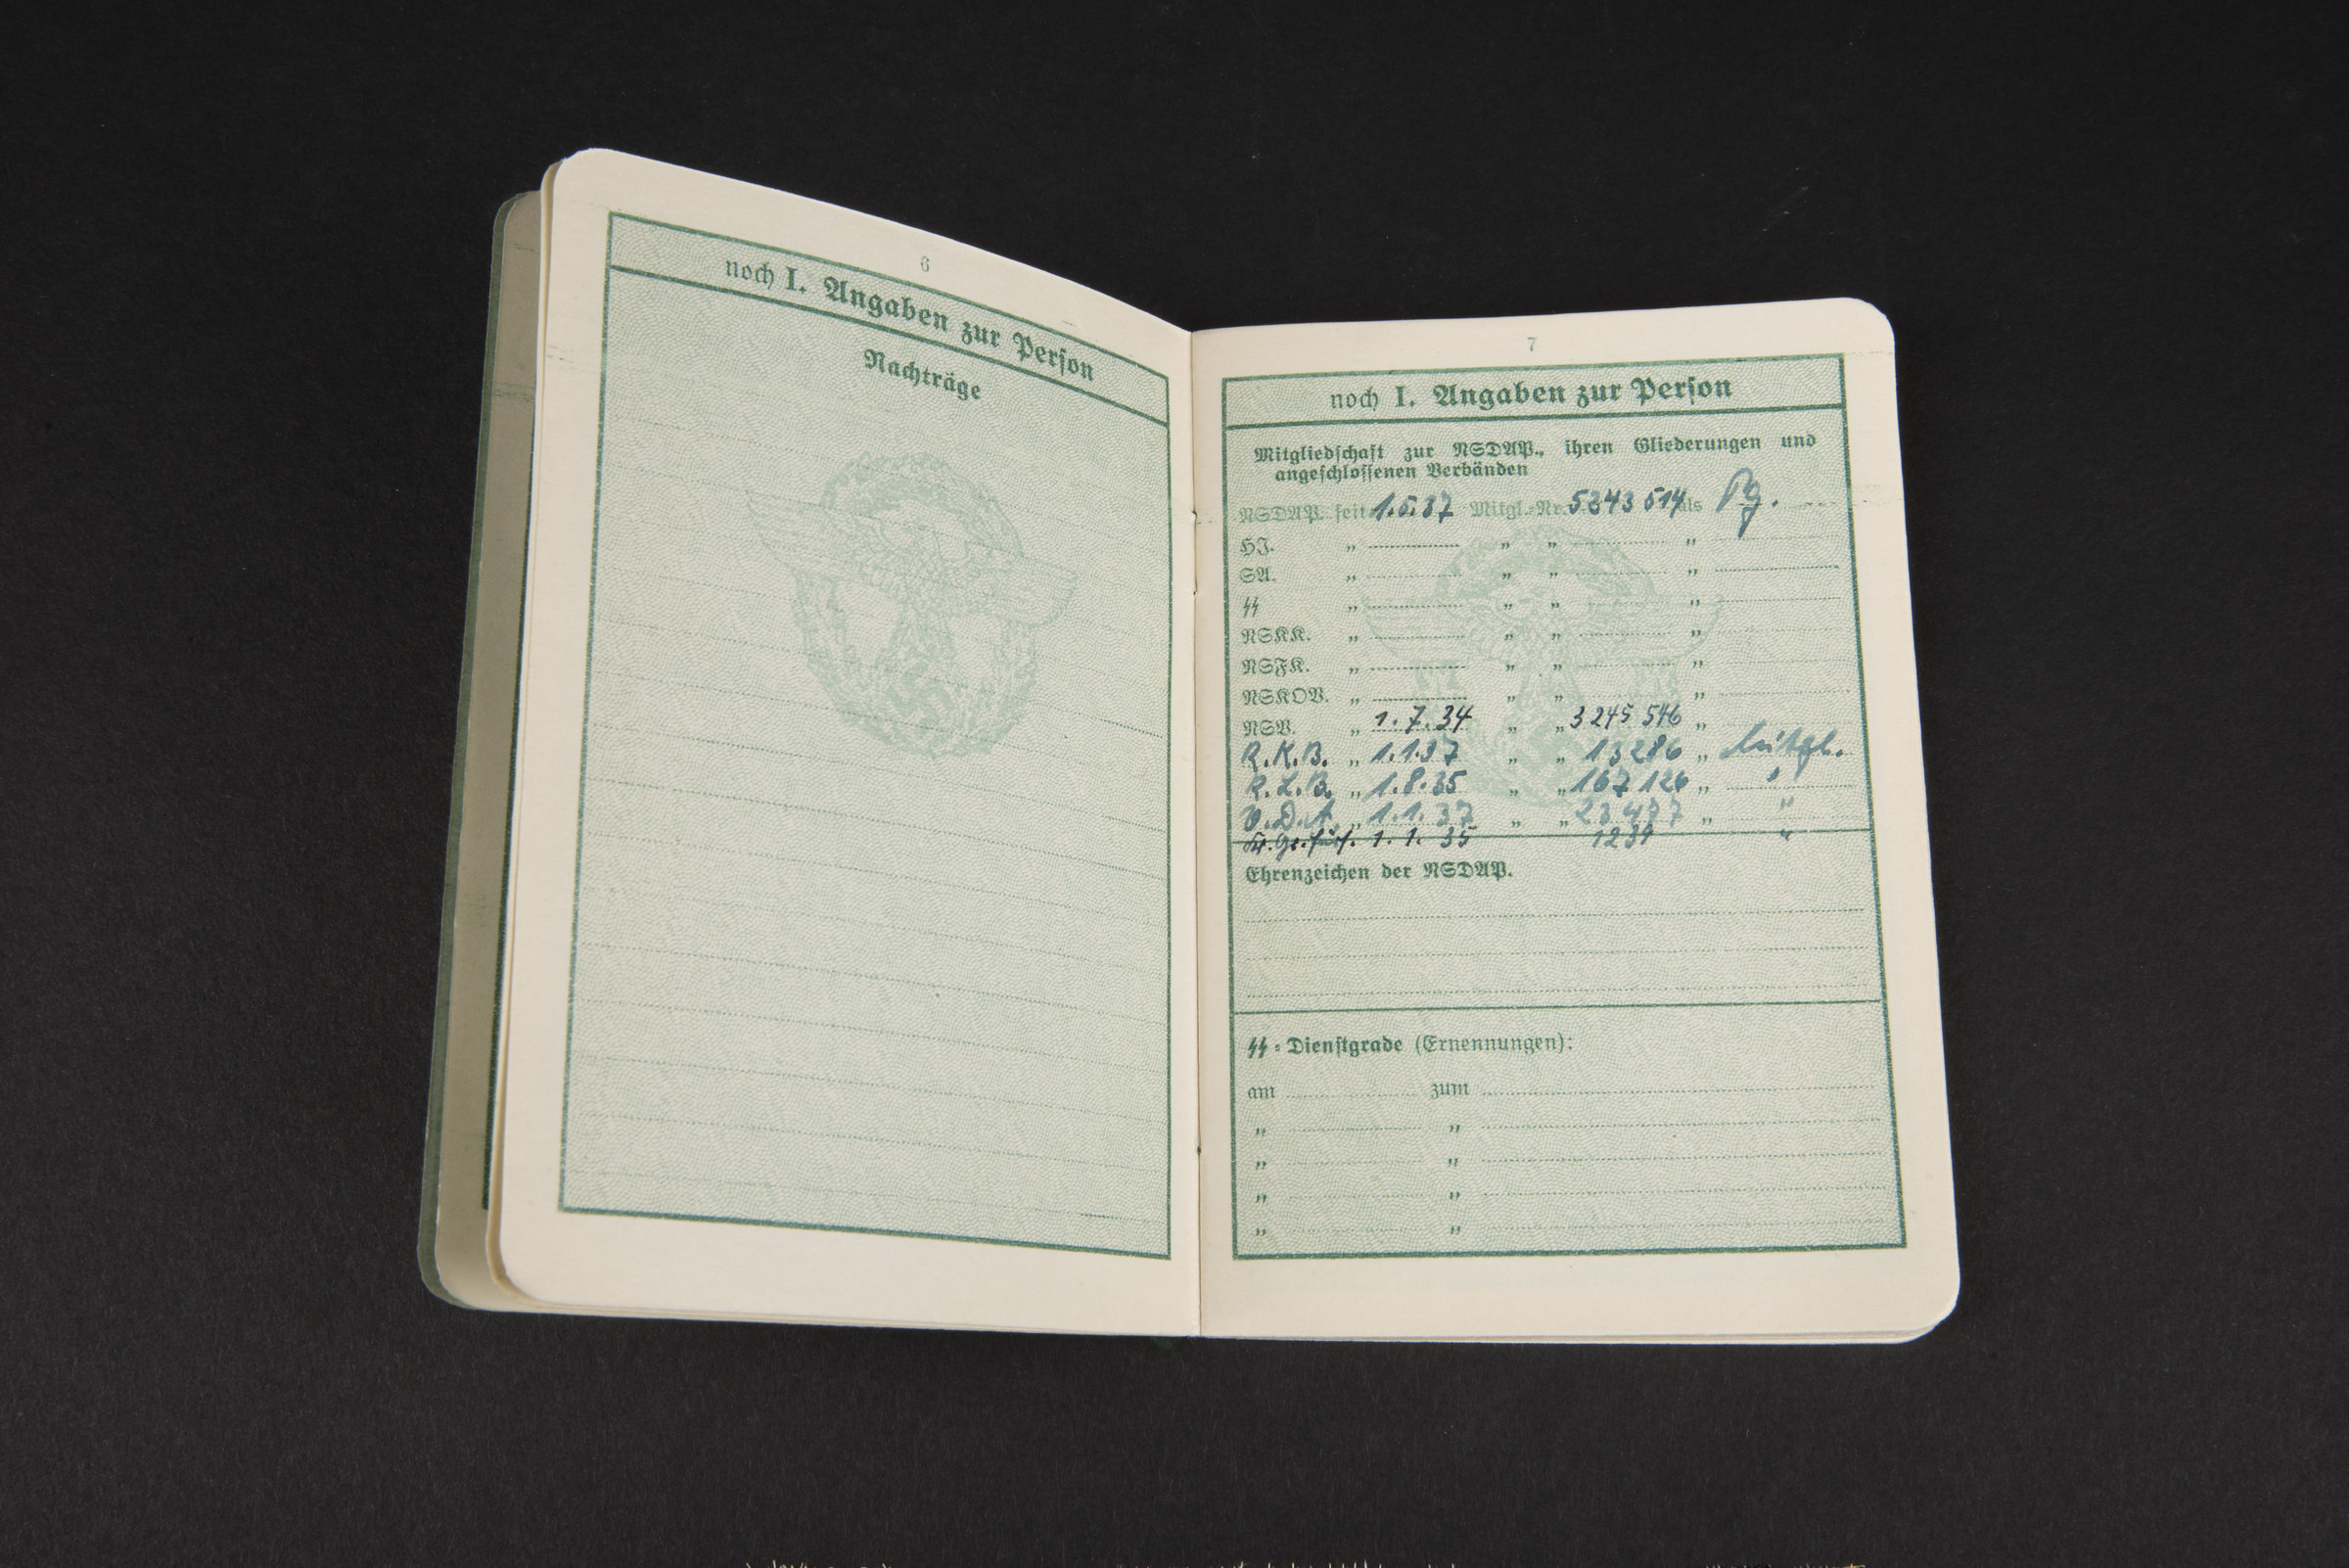 6
noch I. Angaben zur Person
Nachträge
7
noch I. Angaben zur Person
Mitgliedschaft zur NSDAP., ihren Gliederungen und
angeschlossenen Verbänden
NSDAP. seit 1.5.37 Mitgl.-Nr. 5243 514 als Pg.
HJ. " " " "
SA. " " " "
SS " " " "
NSKK. " " " "
NSFK. " " " "
NSKOV. " " " "
NSV. " 1.7.34 " " 3245 546 "
R.K.B. " 1.1.37 " " 13286 " Mitgl.
R.L.B. " 1.8.35 " " 167126 " "
V.D.A. " 1.1.37 " " 23477 " "
1.1.35 1239 "
Ehrenzeichen der NSDAP.
SS-Dienstgrade (Ernennungen):
am zum
" "
" "
" "
" "